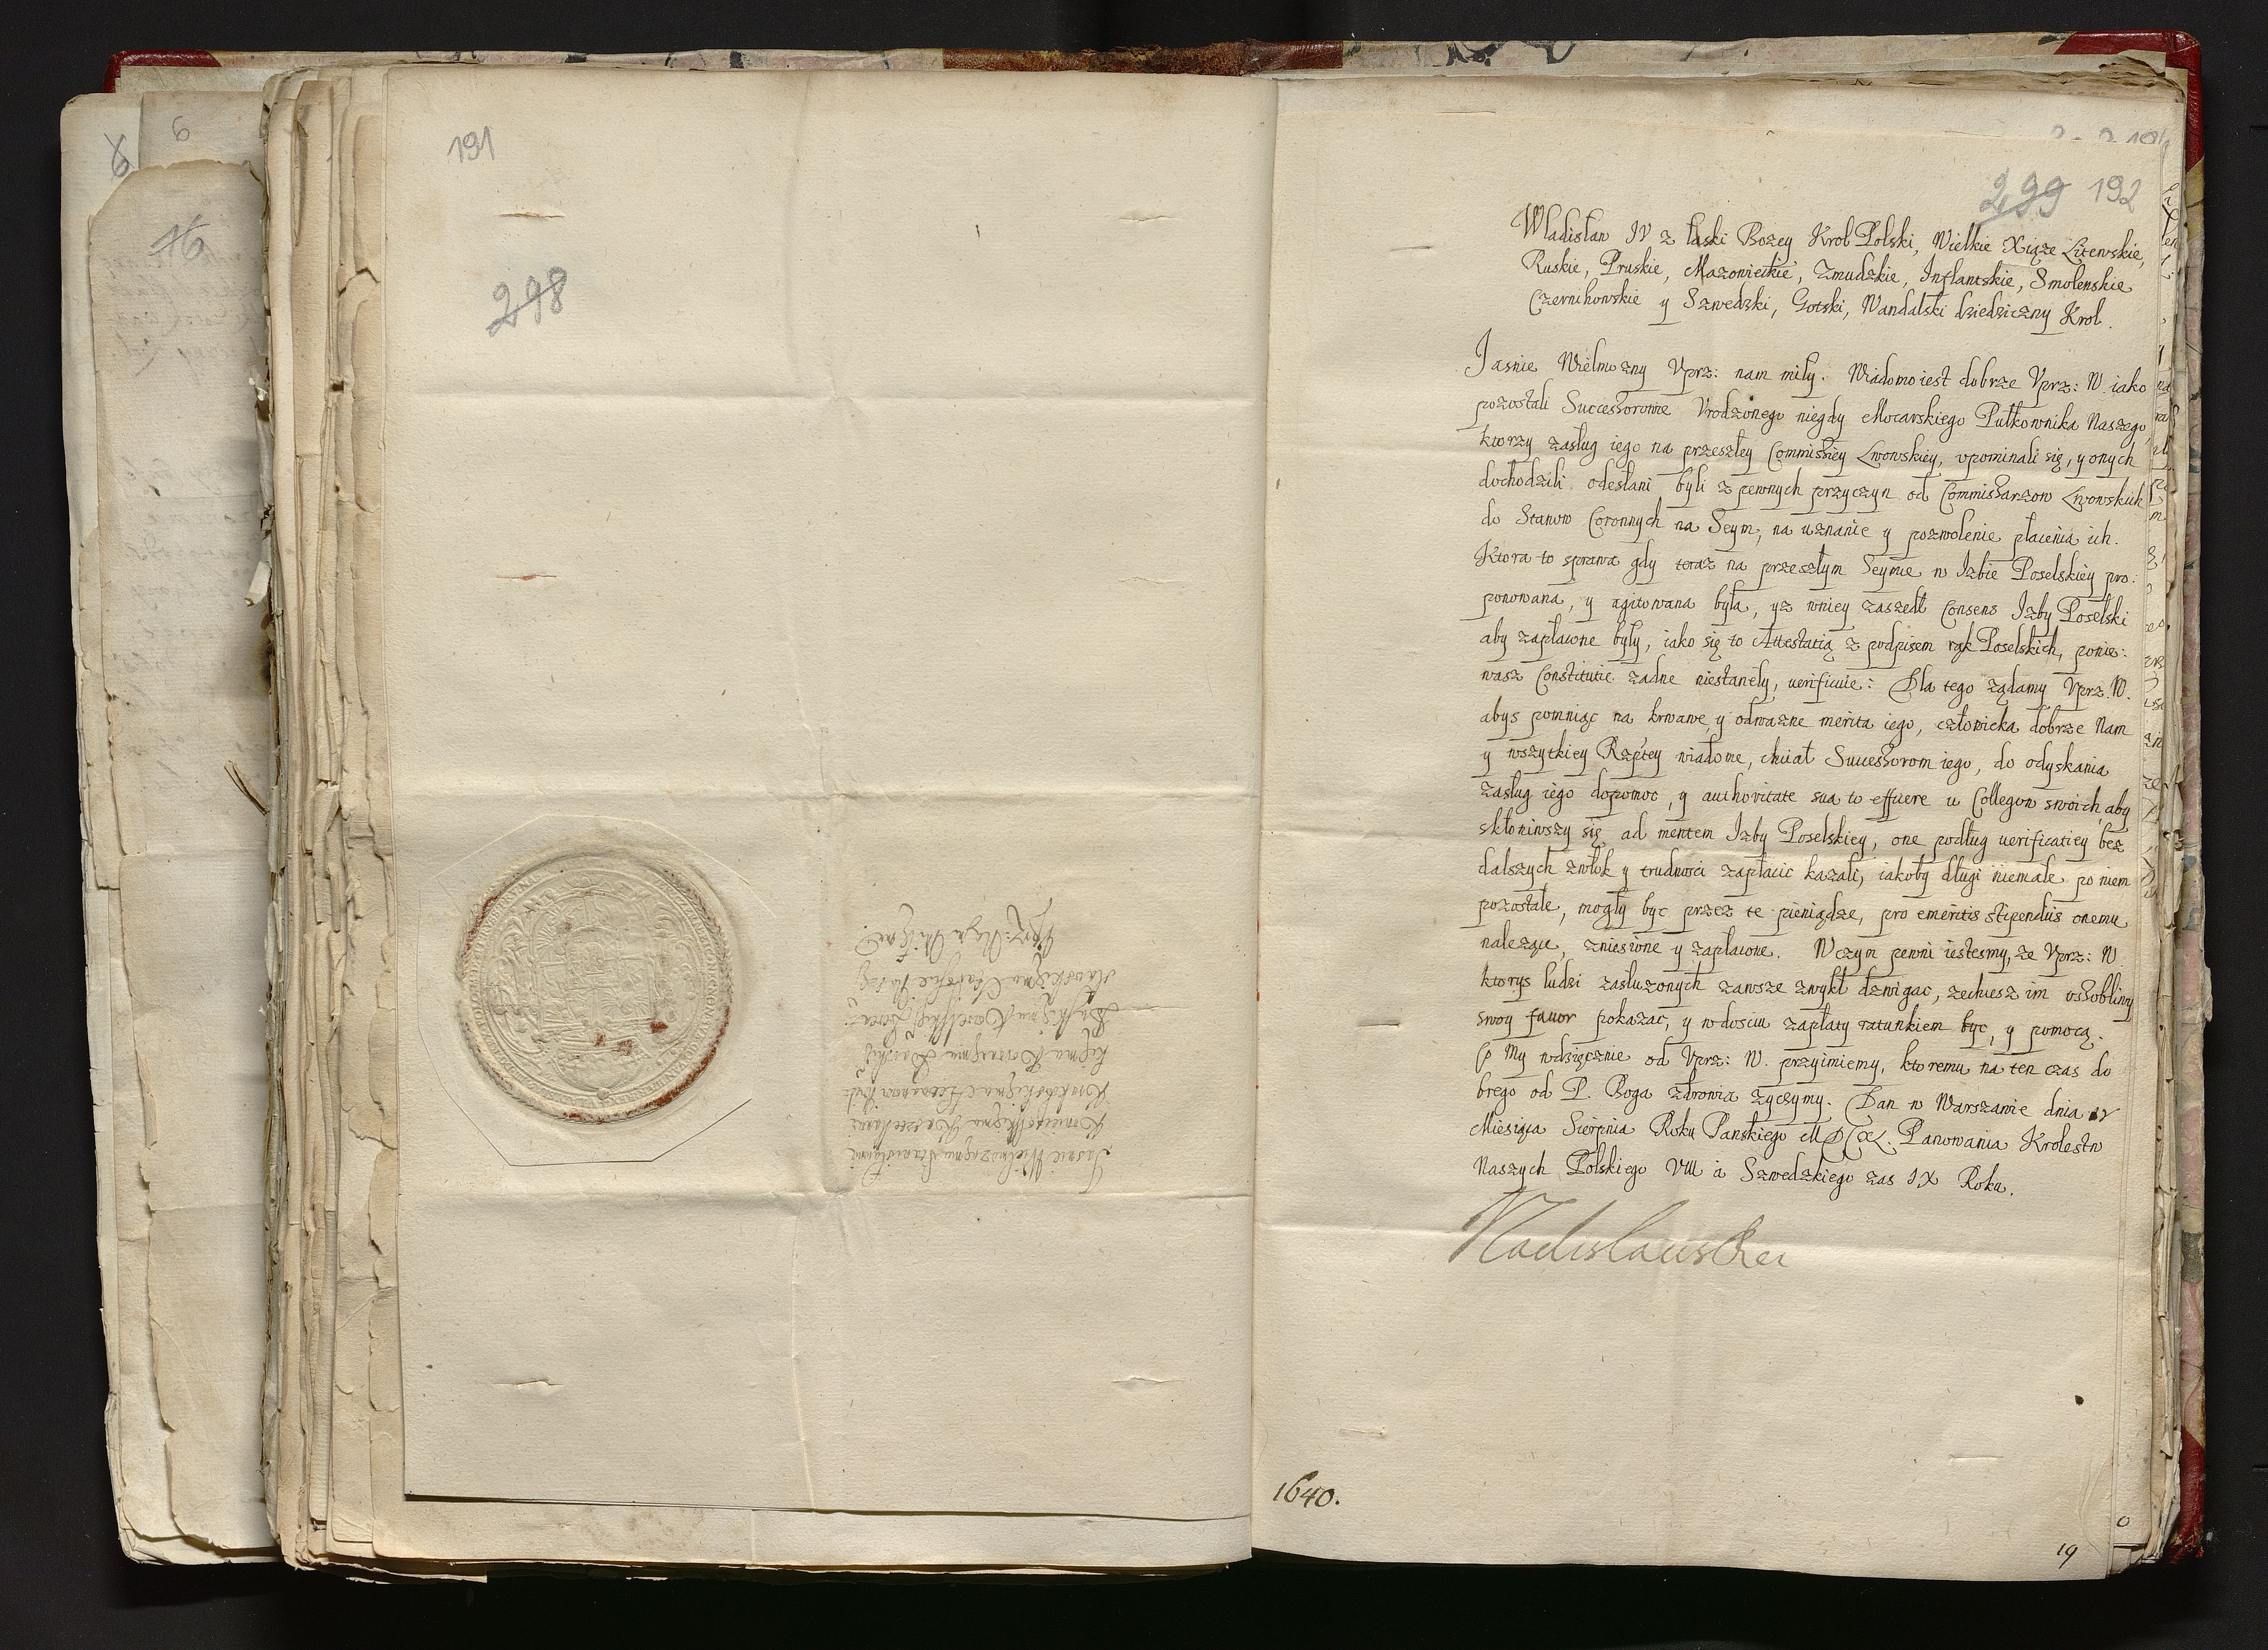 191
298
Jasnie Wielmoznemu Stanisławowi
Koniecpolskiemu Kasztellanowi
Krakowskiemu Hetmanowi
Vprz: Nam Miłemu
299 192
Wladisław IV z łaski Bozey Krol Polski, Wielkie Xiąze Litewskie,
Ruskie, Pruskie, Mazowieckie, Zmudzkie, Inflantskie, Smolenskie
Czernihowskie y Szwedzki, Gotski, Wandalski dziedziczny Krol.
Jasnie Wielmozny Vprz: nam miły. Wiadomo iest dobrze Vprz: W. iako
pozostali Successorowie Vrodzonego niegdy Mocarskiego Pułkownika Naszego,
ktorzy zasług iego na przeszłey Commissiey Lwowskiey, vpominali się, y onych
dochodzili odesłani byli z pewnych przyczyn od Commissarzow Lwowskich
do Stanow Coronnych na Seym, na uznanie y pozwolenie płacenia ich.
Ktora to sprawa gdy teraz na przeszłym Seymie w Izbie Poselskiey pro:
ponowana, y agitowana była, yz wniey zaszedł Consens Izby Poselski
aby zapłacone były, iako się to Attestatią z podpisem rąk Poselskich, ponie:
wasz Constitutie zadne niestanęły, uerificuie: Dla tego ządamy Vprz. W.
abys pomniąc na krwawe y odwazne merita iego, człowieka dobrze Nam
y wszytkiey Rzptey wiadome, chciał Successorom iego, do odyskania
zasług iego dopomoc, y authoritate sua to efficere u Collegow swoich, aby
skłoniwszy się ad mentem Izby Poselskiey, one podług uerificatiey bez
dalszych zwłok y trudnosci zapłacic kazali, iakoby długi niemałe po niem
pozostałe, mogły byc przez te pieniądze, pro emeritis stipendiis onemu
nalezące, zniesione y zapłacone. W czym pewni iestesmy, ze Vprz: W
ktorys ludzi zasłuzonych zawsze zwykł dzwigac, zechcesz im osobliwy
swoy fauor pokazac, y w dosciu zapłaty ratunkiem byc, y pomocą.
Co My wdzięcznie od Vprz: W. przyimiemy, ktoremu na ten czas do
brego od P. Boga zdrowia zyczymy. Dan w Warszawie dnia
Miesiąca Sierpnia Roku Panskiego MDCXL. Panowania Krolestw
Naszych Polskiego VIII a Szwedzkiego zas IX Roku.
Vladislaus Rex
1640.
19